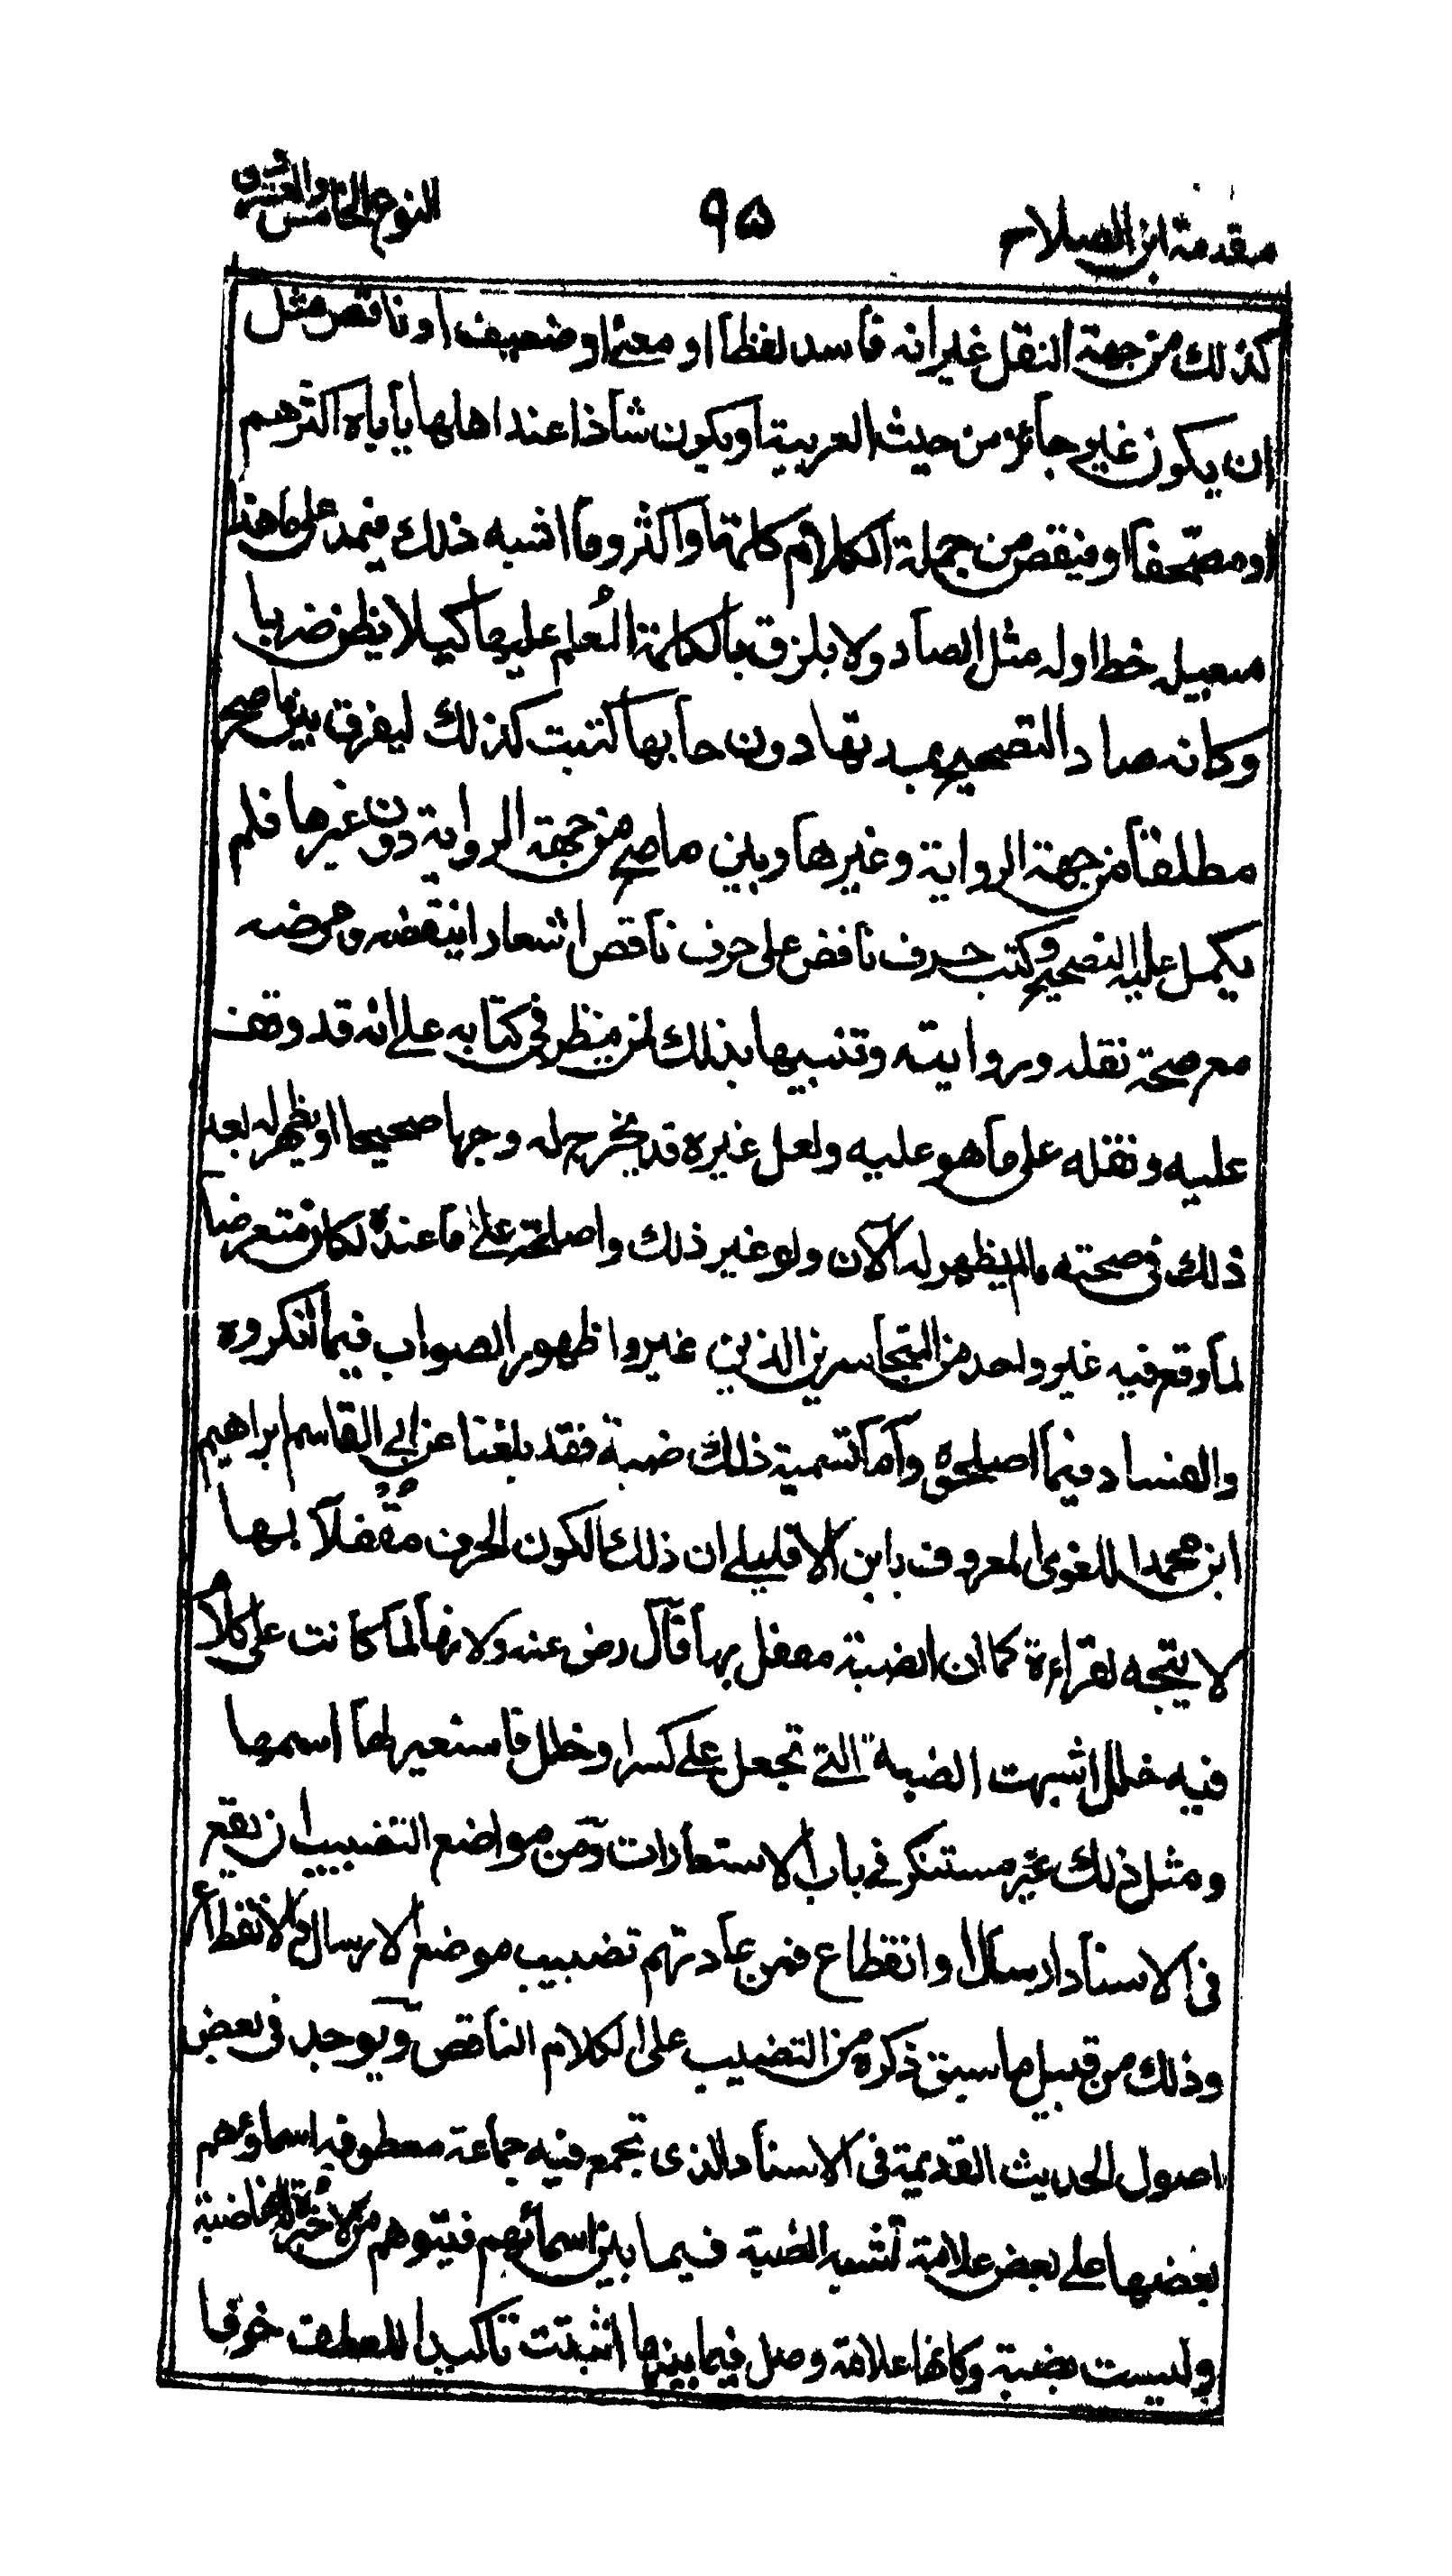 مقدمة ابن الصلاح ٩٥ النوع الخامس والعشرون
كذلك من جهة النقل غير انه فاسد لفظا او معنى او ضعيف او ناقص مثل
ان يكون غير جائز من حيث العربية او يكون شاذا عند اهلها يأباه اكثرهم
او مصحفا او ينقص من جملة الكلام كلمة او اكثر وما اشبه ذلك فيمد على ما هذا
سبيله خط اوله مثل الصاد ولا يلزق بالكلمة المعلم عليها كيلا يظن ضربا
وكانه صاد التصحيح بمدتها دون حائها كتبت كذلك ليفرق بين ما صح
مطلقا من جهة الرواية وغيرها وبين ما صح من جهة الرواية دون غيرها فلم
يكمل عليه التصحيح وكتب حرف ناقص على حرف ناقص اشعارا بنقصه ومرضه
مع صحة نقله وروايته وتنبيها بذلك لمن ينظر في كتابه على انه قد وقف
عليه ونقله على ما هو عليه ولعل غيره قد يخرج له وجها صحيحا او يظهر له بعد
ذلك في صحته ما لم يظهر له الآن ولو غير ذلك واصلحه على ما عنده لكان متعرضا
لما وقع فيه غير واحد من المتجاسرين الذين غيروا ظهور الصواب فيما انكروه
والفساد فيما اصلحوه واما تسمية ذلك ضبة فقد بلغنا عن ابي القاسم ابراهيم
ابن محمد اللغوى المعروف بابن الاقليلي ان ذلك لكون الحرف مقفلا بها
لا يتجه لقراءة كما ان الضبة مقفل بها قال رضى عنه ولانها لما كانت على كلام
فيه خلل اشبهت الضبة التي تجعل على كسر او خلل فاستعير لها اسمها
ومثل ذلك غير مستنكر في باب الاستعارات ومن مواضع التضبيب ان يقع
في الاسناد ارسال او انقطاع فمن عادتهم تضبيب موضع الارسال والانقطاع
وذلك من قبيل ما سبق ذكره من التضبيب على الكلام الناقص ويوجد في بعض
اصول الحديث القديمة في الاسناد الذى تجمع فيه جماعة معطوفة اسماؤهم
بعضها على بعض علامة تشبه الضبة فيما بين اسمائهم فيتوهم من لا خبرة له انها ضبة
وليست بضبة وكانها علامة وصل فيما بينها اثبتت تاكيدا للعطف خوفا